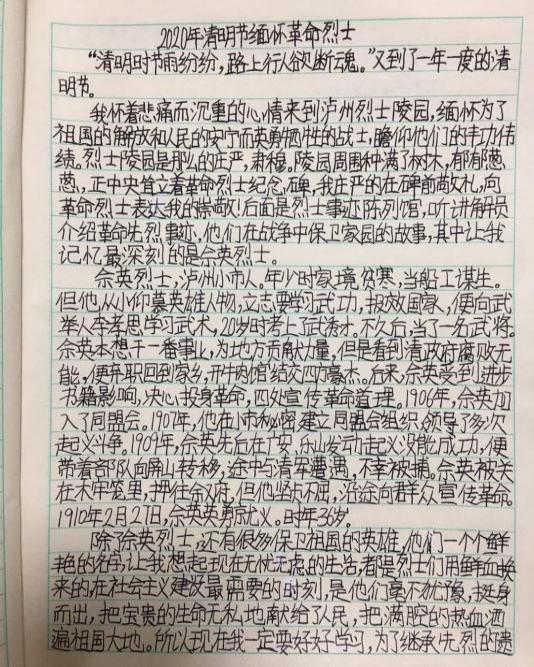 2020年清明节缅怀革命烈士
“清明时节雨纷纷,路上行人欲断魂。”又到了一年一度的清
明节。
我怀着悲痛而沉重的心情来到泸州烈士陵园,缅怀为了
祖国的解放和人民的安宁而英勇牺牲的战士,瞻仰他们的丰功伟
绩。烈士陵园是那么的庄严,肃穆。陵园周围种满了树木,郁郁葱
葱,正中央耸立着革命烈士纪念碑,我庄严的在碑前敬礼,向
革命烈士表达我的崇敬!后面是烈士事迹陈列馆,听讲解员
介绍革命先烈事迹,他们在战争中保卫家园的故事,其中让我
记忆最深刻的是佘英烈士。
佘英烈士,泸州小市人。年少时家境贫寒,当船工谋生。
但他从小仰慕英雄人物,立志要学习武功,报效国家,便向武
举人李孝思学习武术,20岁时考上了武秀才。不久后,当了一名武将。
佘英本想干一番事业,为地方贡献力量,但是看到清政府腐败无
能,便弃职回到家乡,开牛肉馆结交四方豪杰。后来,佘英受到进步
书籍影响,决心投身革命,四处宣传革命道理。1906年,佘英加
入了同盟会。1907年,他在小市秘密建立同盟会组织,领导了多次
起义斗争。1909年,佘英先后在广安,乐山发动起义没能成功,便
带着部队向屏山转移,途中与清军遭遇,不幸被捕。佘英被关
在木牢笼里,押往叙府,但他坚贞不屈,沿途向群众宣传革命。
1910年2月27日,佘英英勇就义。时年36岁。
除了佘英烈士,还有很多保卫祖国的英雄,他们一个个鲜
艳的名字,让我想起现在无忧无虑的生活,都是烈士们用鲜血换
来的,在社会主义建设最需要的时刻,是他们毫不犹豫,挺身
而出,把宝贵的生命无私地献给了人民,把满腔的热血洒
遍祖国大地。所以现在我一定要好好学习,为了继承先烈的遗